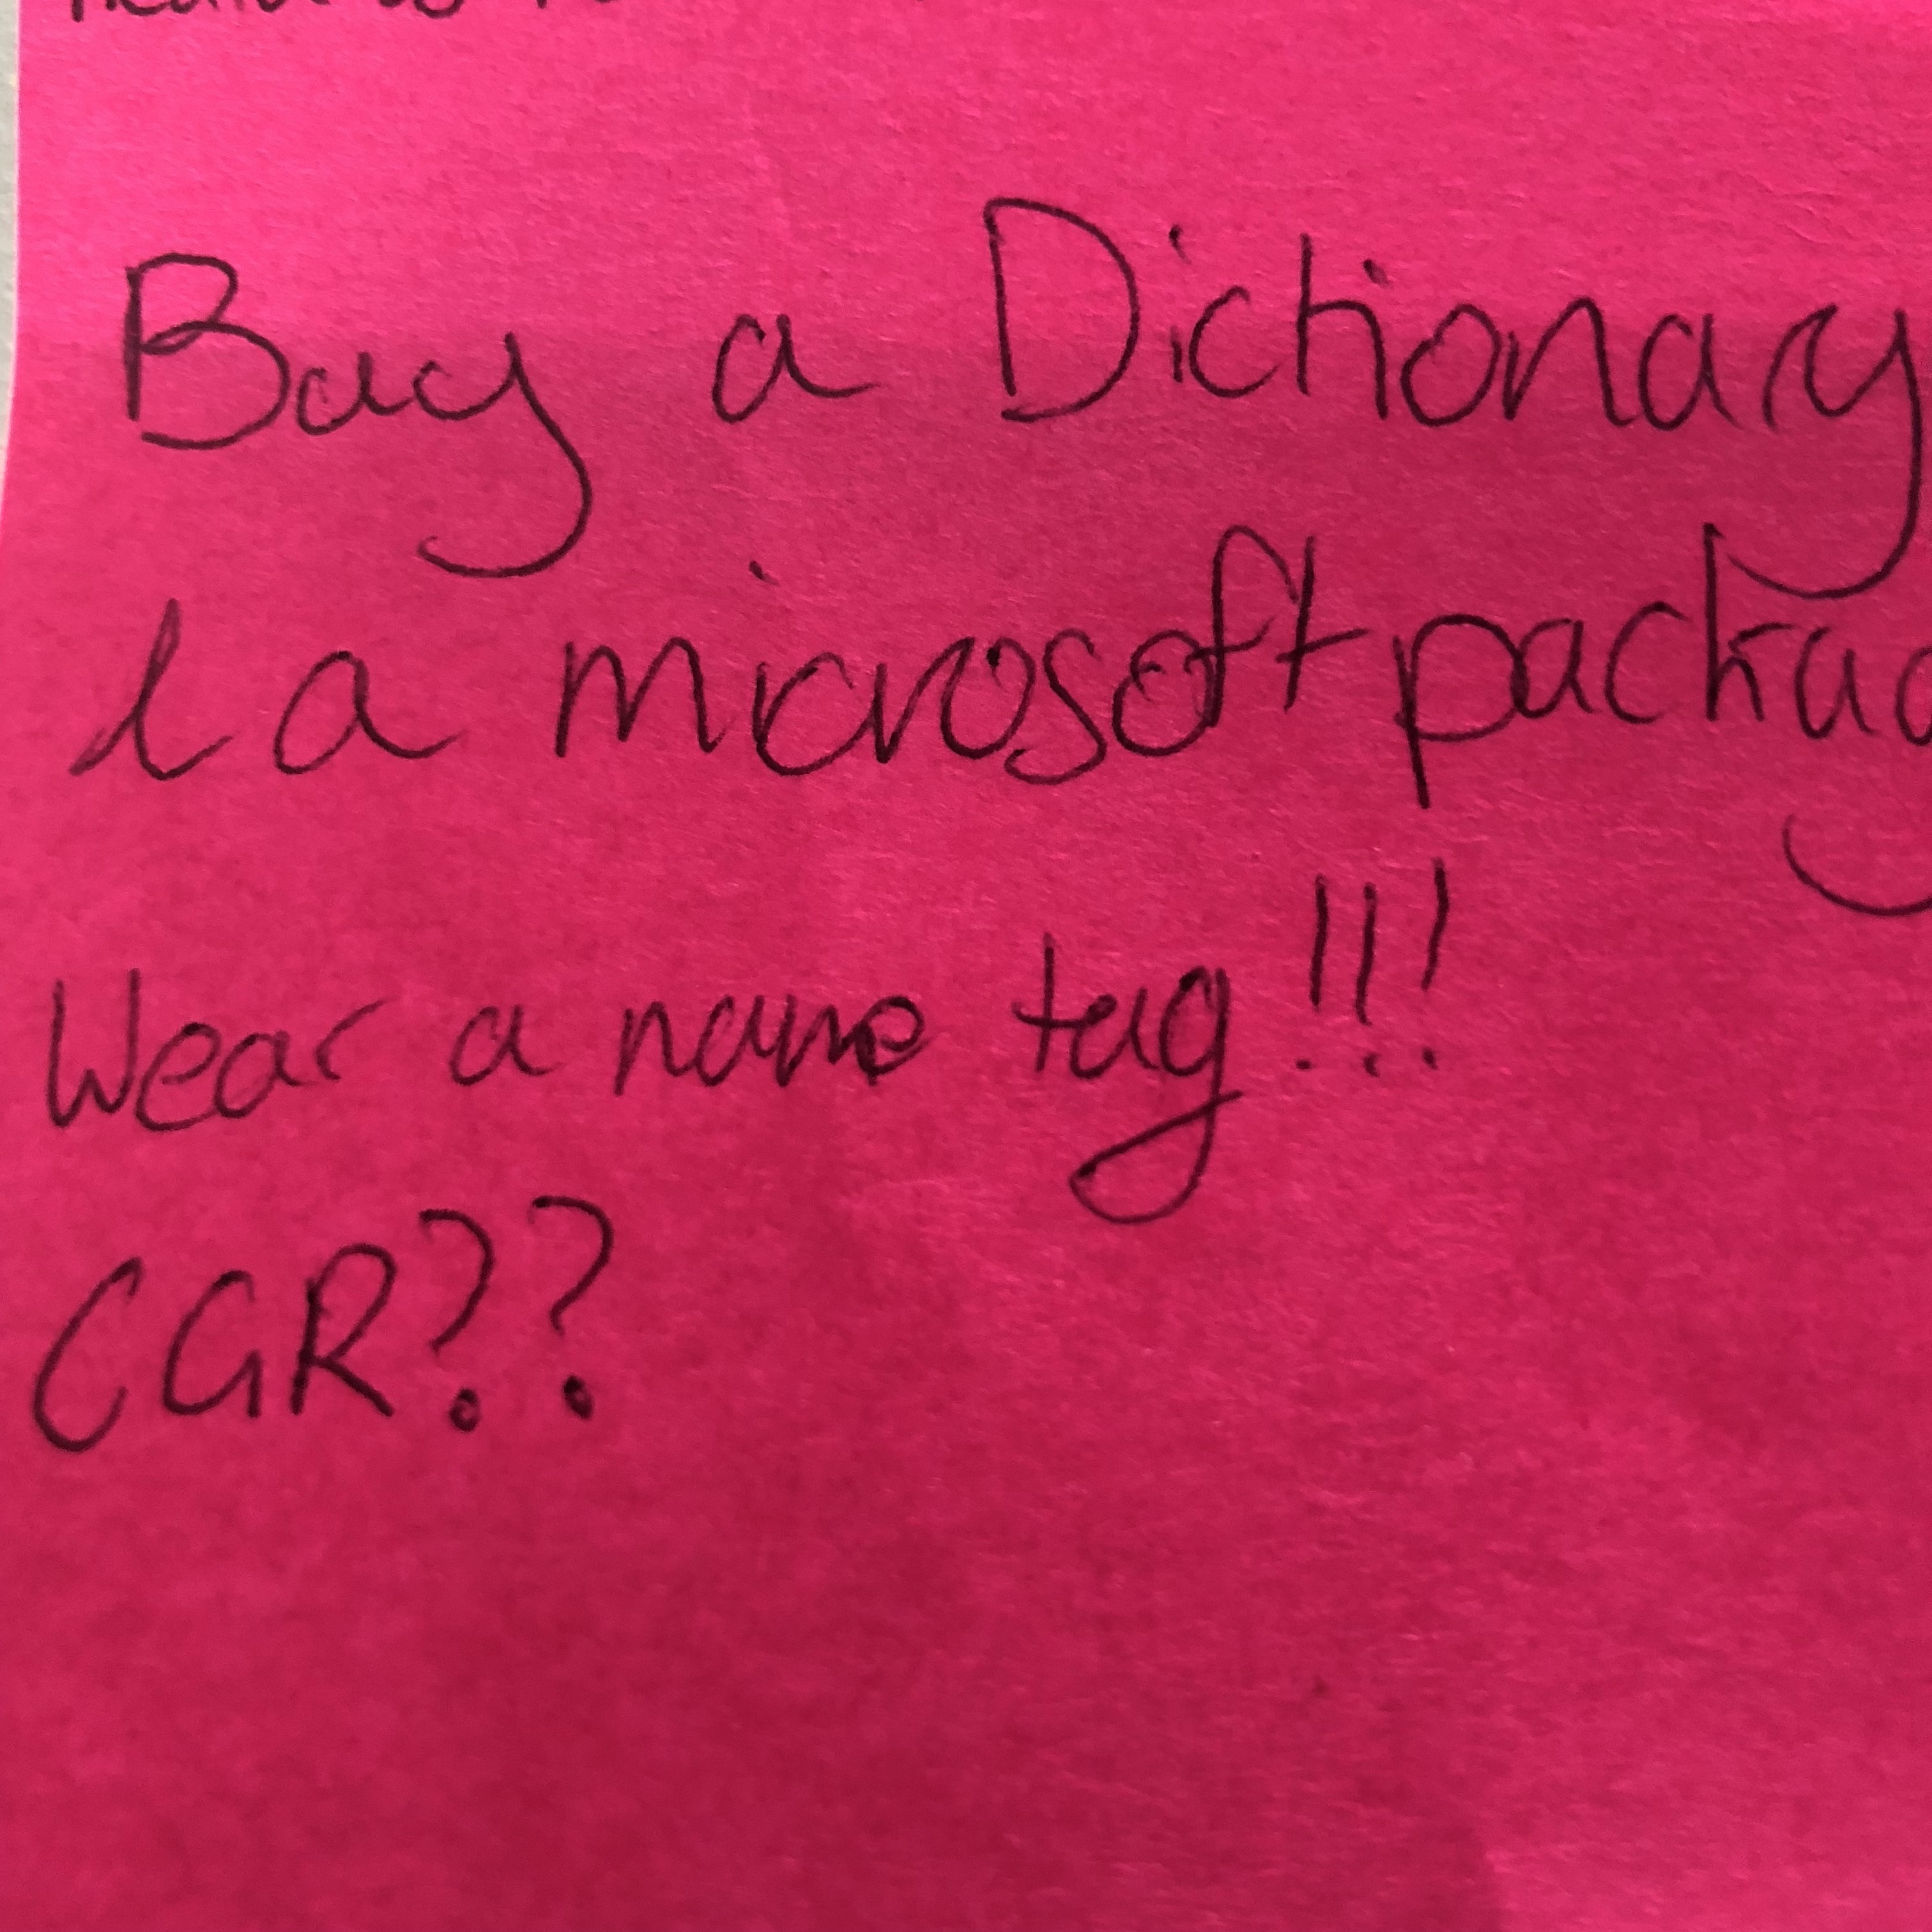 Buy a Dictionary
& a microsoft packag
Wear a name tag!!!
CGR??